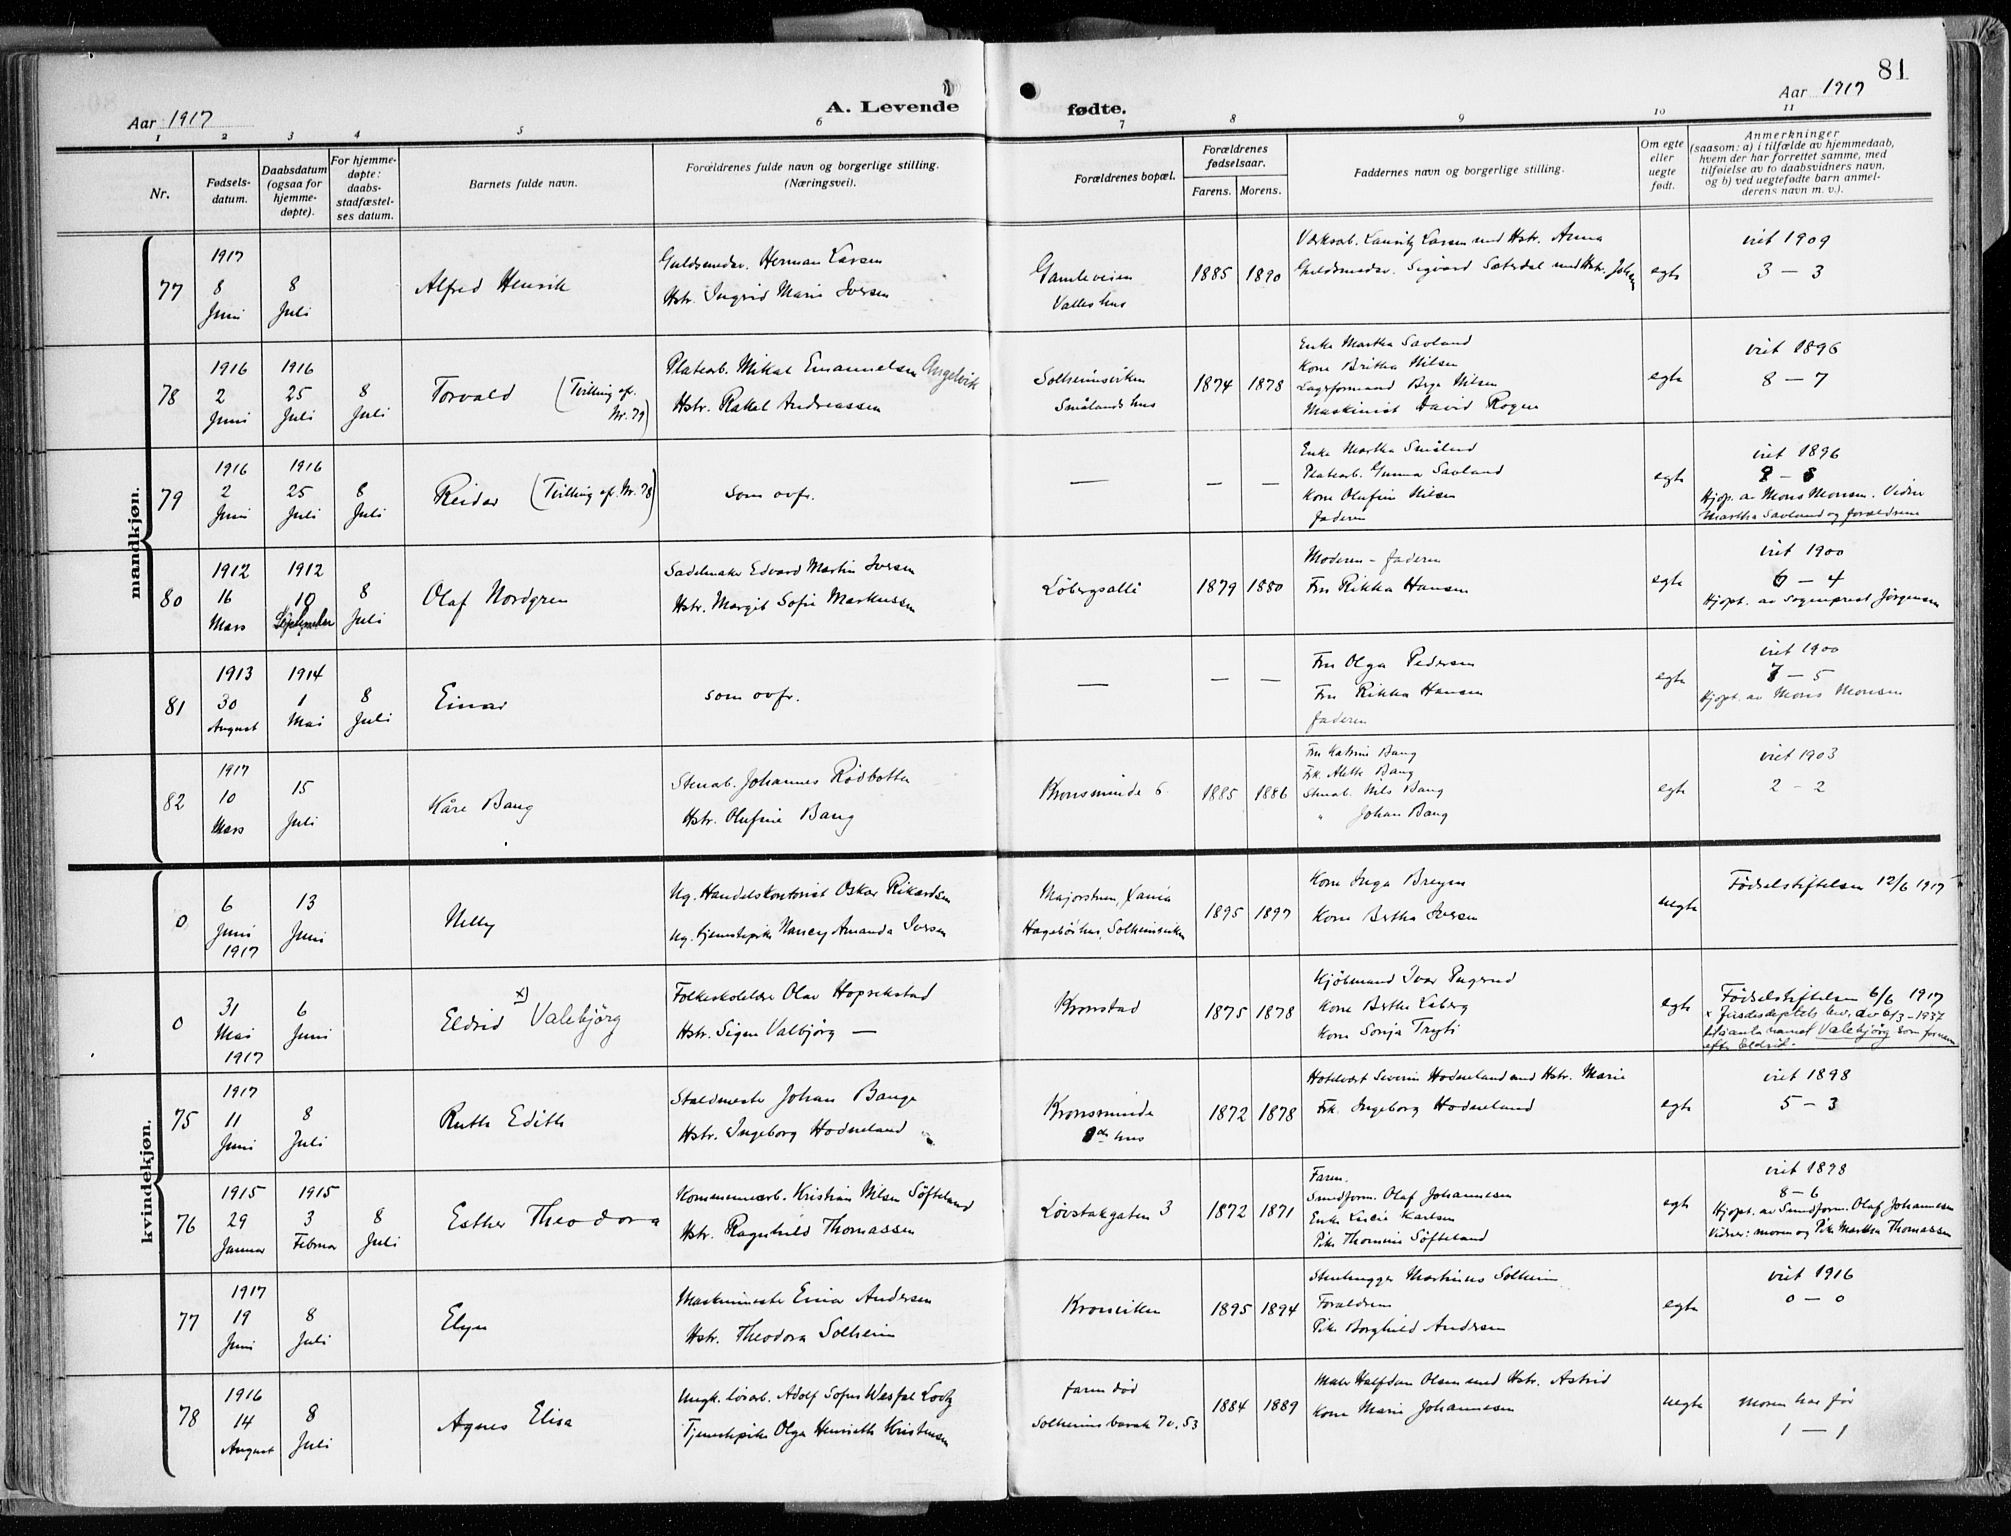 81
Aar 1917
A. Levende
fødte.
Aar 1917
1 2 3 4 5 6 7 8 9 10 11
Nr.
Fødsels-
datum.
Daabsdatum
(ogsaa for
hjemme-
døpte).
For hjemme-
døpte:
daabs-
stadfæstel-
ses datum.
Barnets fulde navn.
Forældrenes fulde navn og borgerlige stilling.
(Næringsvei).
Forældrenes bopæl.
Forældrenes
fødselsaar.
Farens. Morens.
Faddernes navn og borgerlige stilling.
Om egte
eller
uegte
født.
Anmerkninger
(saasom: a) i tilfælde av hjemmedaab,
hvem der har forrettet samme, med
tilføielse av to daabsvidners navn,
og b) ved uegtefødte barn anmel-
derens navn m. v.).
mandkjøn.
77
1917
8
Juni
8
Juli
Alfred Henrik
Guldsmedsv. Herman Larsen
Hstr. Ingrid Marie Iversen
Gamleveien
Valles hus
1885 1890
Værksarb. Lauritz Larsen med Hstr. Anna
Guldsmedsv. Sigvard Sætrdal med Hstr. Johan
egte
viet 1909
3 – 3
78
1916
2
Juni
1916
25
Juli
8
Juli
Torvald (Tvilling af.
Nr. 79)
Platearb. Mikal Emanuelsen Angelvik
Hstr. Rakel Andreassen
Solheimsviken
Smålands hus
1874 1878
Enke Martha Savland
Kone Britha Nilsen
Lagerformand Brge Nilsen
Maskinist David Rogne
egte
viet 1896
8 – 7
79
1916
2
Juni
1916
25
Juli
8
Juli
Reidar (Tvilling af. Nr. 78)
som ovfr.
— – –
Enke Martha Småland
Platearb. Gunna Savland
Kone Olufine Nilsen
faderen
egte
viet 1896
8 – 8
Hjdp. av Mons Monsen. Vidner
Martha Savland og forældrene
80
1912
16
Mars
1912
10
September
8
Juli
Olaf Nordgren
Sadelmaker Edvard Martin Iversen
Hstr. Margit Sofie Markussen
Løbergsallé
1879 1880
Moderen – faderen
Fru Rikka Hansen
egte
viet 1900
6 – 4
Hjdpt. av Sogneprest Jørgensen
81
1913
30
August
1914
1
Mai
8
Juli
Einar
som ovfr.
— – –
Fru Olga Pedersen
Fru Rikka Hansen
faderen
egte
viet 1900
7 – 5
Hjdpt. av Mons Monsen
82
1917
10
Mars
15
Juli
Kåre Bang
Stenarb. Johannes Rødbotten
Hstr. Olufine Bang
Kronsminde 6
1885 1886
Fru Katrine Bang
Frk. Alette Bang
Stenarb. Nils Bang
" Johan Bang
egte
viet 1903
2 – 2
kvindekjøn.
0
6
Juni
1917
13
Juni
Nelly
Ug. Handelskontorist Oskar Rikardsen
Ug. tjenestepike Nancy Amanda Iversen
Majorstuen, Xania
Hagebøs hus, Solheimsviken
1895 1897
Kone Inga Breyen
Kone Bertha Iversen
uegte
Fødselstiftelsen 12/6 1917
0
31
Mai
1917
6
Juni
Eldrid x) Valebjörg
Folkeskolelærer Olav Hoprekstad
Hstr. Signe Valbjörg —
Kronstad
1875 1878
Kjøbmand Ivar Pugerud
Kone Berthe Loberg
Kone Sonja Trygti
egte
Fødselstiftelsen 6/6 1917
x Jusdedeptets bev. av 6/3-1937
til å anta navnet Valebjörg som fornavn
efter Eldrid.
75
1917
11
Juni
8
Juli
Ruth Edith
Staldmester Johan Bange
Hstr. Ingeborg Hodneland
Kronsminde
hus
1872 1878
Hotelvært Severin Hodneland med Hstr. Marie
Frk. Ingeborg Hodneland
egte
viet 1898
5 – 3
76
1915
29
Januar
1915
3
Februar
8
Juli
Esther Theodora
Kommunearb. Kristian Nilsen Söfteland
Hstr. Ragnhild Thomassen
Løvstakgaten 3
1872 1871
Faren.
Smedform. Olaf Johannesen
Enke Lucie Karlsen
Pike Thomine Söfteland
egte
viet 1898
8 – 6
Hjdpt. av Smedform. Olaf Johannesen
Vidner: moren og Pike Martha Thomassen
77
1917
19
Juni
8
Juli
Elyn
Maskinmester Einar Andersen
Hstr. Theodora Solheim
Kronviken
1895 1894
Stenhugger Martinus Solheim
Forældrene
Pike Borghild Andersen
egte
viet 1916
0 – 0
78
1916
14
August
8
Juli
Agnes Elisa
Ungk. løsarb. Adolf Sofus Wesfal Lootz
Tjenestepike Olga Henriette Kristensen
faren død
Solheims barak 7 v. 53
1884 1889
Maler Halfdan Olsen med Hstr. Astrid
Kone Marie Johannesen
uegte
moren har før
1 – 1